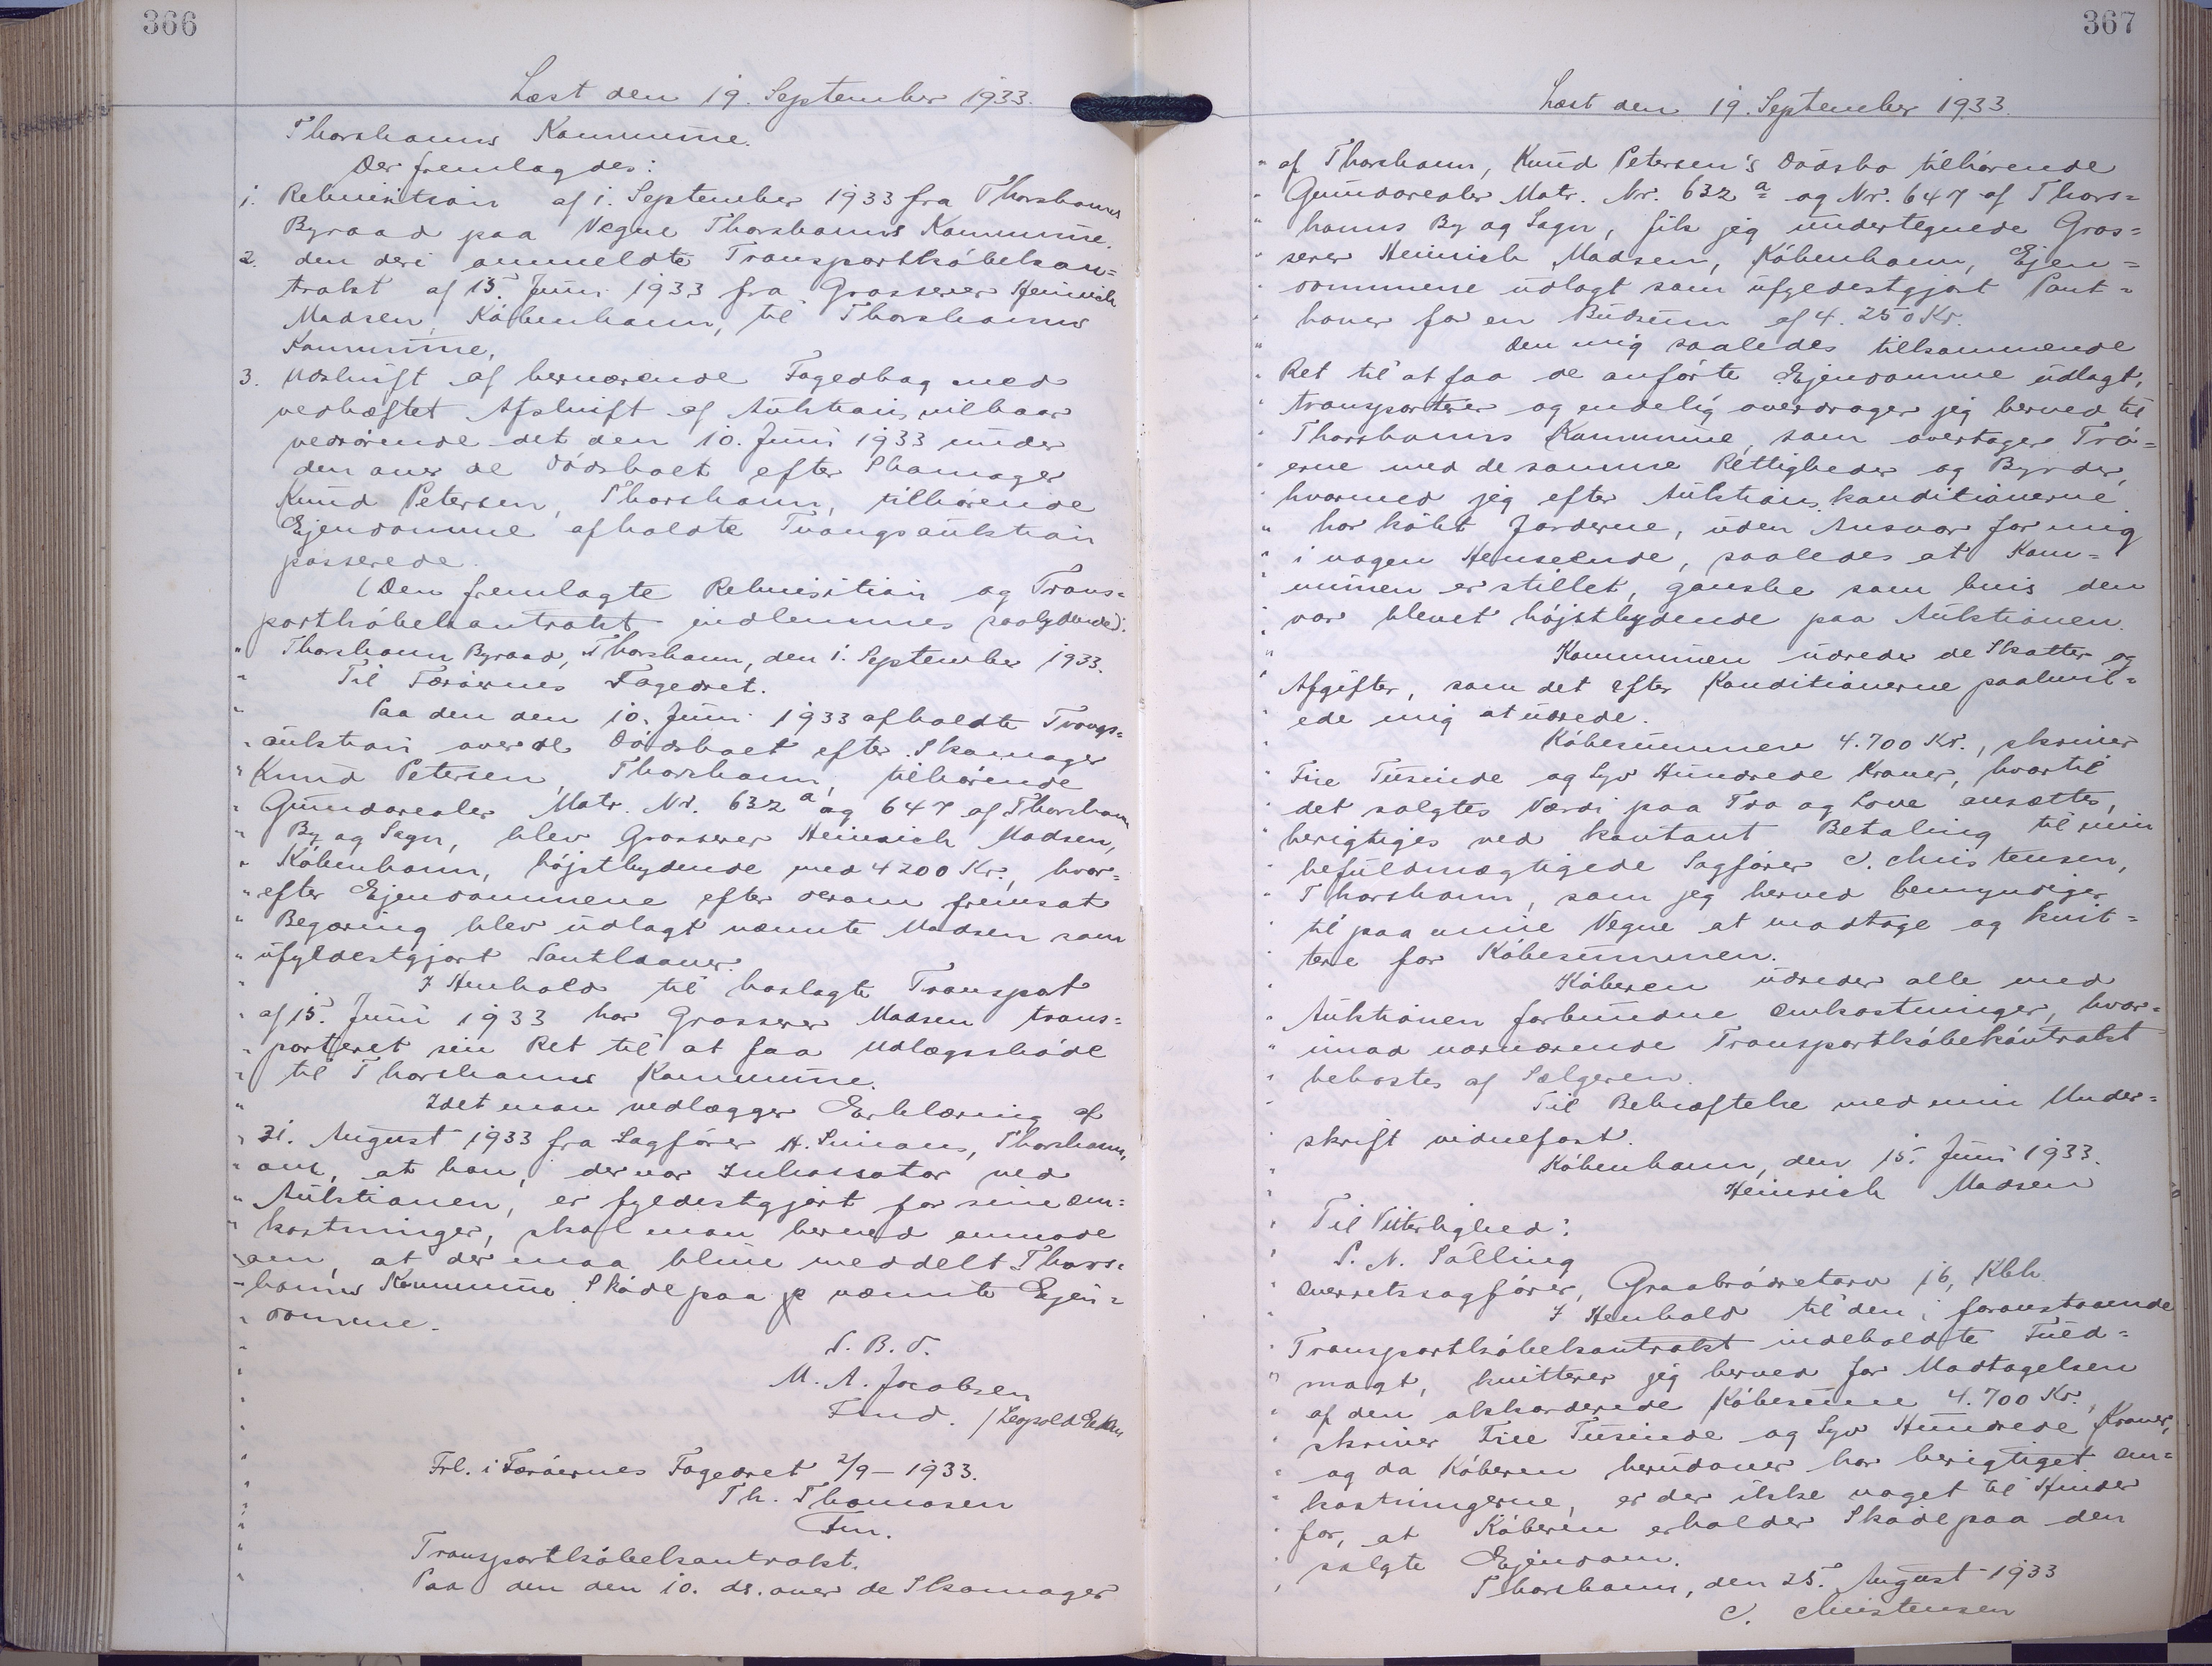 366
Læst den 19. September 1933.
Thorshavns Kommune.
Der fremlagdes:
1. Rekvisition af 1. September 1933 fra Thorshavns
Byraad paa Vegne Thorshavns Kommune.
2. den deri ommeldte Transportkøbekon=
trakt af 15. Juni 1933 fra Grosserer Heinrich
Madsen, København, til Thorshavns
Kommune,
3. Udskrift af herværende Fogedbog med
vedhæftet Afskrift af Auktionsvilkaar
vedrørende det den 10. Juni 1933 under
den over de Dødsboet efter Skomager
Knud Petersen, Thorshavn, tilhørende
Ejendomme afholdte Tvangsauktion
passerede.
(Den fremlagte Rekvisition og Trans=
portkøbekontrakt indlemmes saalydende):
" Thorshavn Byraad, Thorshavn, den 1. September 1933.
" Til Færøernes Fogedret.
" Paa den den 10. Juni 1933 afholdte Tvangs=
" auktion over de Dødsboet efter Skomager
" Knud Petersen, Thorshavn, tilhørende
" Grundarealer Matr. Nr. 632 a og 647 af Thorshavn
" By og Sogn, blev Grosserer Heinrich Madsen,
" København, højstbydende med 4200 Kr., hvor=
" efter Ejendommene efter derom fremsat
" Begæring blev udlagt nævnte Madsen som
" ufyldestgjort Panthaver.
" I Henhold til hoslagte Transport
" af 15. Juni 1933 har Grosserer Madsen trans=
" porteret sin Ret til at faa Udlægsskøde
" til Thorshavns Kommune.
" Idet man vedlægger Erklæring af
" 31. August 1933 fra Sagfører H. Simans, Thorshavn,
" om, at han, der var Inkassator ved
" Auktionen, er fyldestgjort for sine Om=
" kostninger, skal man herved anmode
" om, at der maa blive meddelt Thors=
" havns Kommune Skøde paa nævnte Ejen=
" domme.
" P. B. V.
" M. A. Jacobsen
" Fmd. /
" Frl. i Færøernes Fogedret 2/9 - 1933.
" Th. Thomasen
" Fm.
" Transportkøbekontrakt.
" Paa den den 10. ds. over de Skomager
367
Læst den 19. September 1933.
" af Thorshavn, Knud Petersen's Dødsbo tilhørende
" Grundarealer Matr. Nr. 632 a og Nr. 647 af Thors=
" havns By og Sogn, fik jeg undertegnede Gros=
" serer Heinrich Madsen, København, Ejen=
" dommene udlagt som ufyldestgjort Pant=
" haver for en Budsum af 4.250 Kr.
" Den mig saaledes tilkommende
" Ret til at faa de anførte Ejendomme udlagt,
" transporterer og endelig overdrager jeg herved til
" Thorshavns Kommune, som overtager Trø=
" erne med de samme Rettigheder og Byrder,
" hvormed jeg efter Auktionskonditionerne
" har købt Jorderne, uden Ansvar for mig
" i nogen Henseende, saaledes at Kom=
" munen er stillet, ganske som hvis den
" var blevet højstbydende paa Auktionen.
" Kommunen udreder de Skatter og
" Afgifter, som det efter Konditionerne paahvil=
" ede mig at udrede.
" Købesummen 4.700 Kr., skriver
" Fire Tusinde og Syv Hundrede Kroner, hvortil
" det solgtes Værdi paa Tro og Love ansættes,
" berigtiges ved kontant Betaling til min
" befuldmægtigede Sagfører C. Christensen,
" Thorshavn, som jeg herved bemyndiger
" til paa mine Vegne at modtage og kvit=
" tere for Købesummen.
" Køberen udreder alle med
" Auktionen forbundne Omkostninger, hvor=
" imod nærværende Transportkøbekontrakt
" bekostes af Sælgeren.
" Til Bekræftelse med min Under=
" skrift vidnefast.
" København, den 15. Juni 1933.
" Heinrich Madsen
" Til Vitterlighed:
" P. N. Pølling
" Overretssagfører, Graabrødretorv 16, Kbh.
" I Henhold til den i foranstaaende
" Transportkøbekontrakt indeholdte Fuld=
" magt, kvitterer jeg herved for Modtagelsen
" af den akkorderede Købesum 4.700 Kr.,
" skriver Fire Tusinde og Syv Hundrede Kroner,
" og da Køberen herudover har berigtiget Om=
" kostningerne, er der ikke noget til Hinder
" for, at Køberen erholder Skøde paa den
" solgte Ejendom.
" Thorshavn, den 25. August 1933
C. Christensen